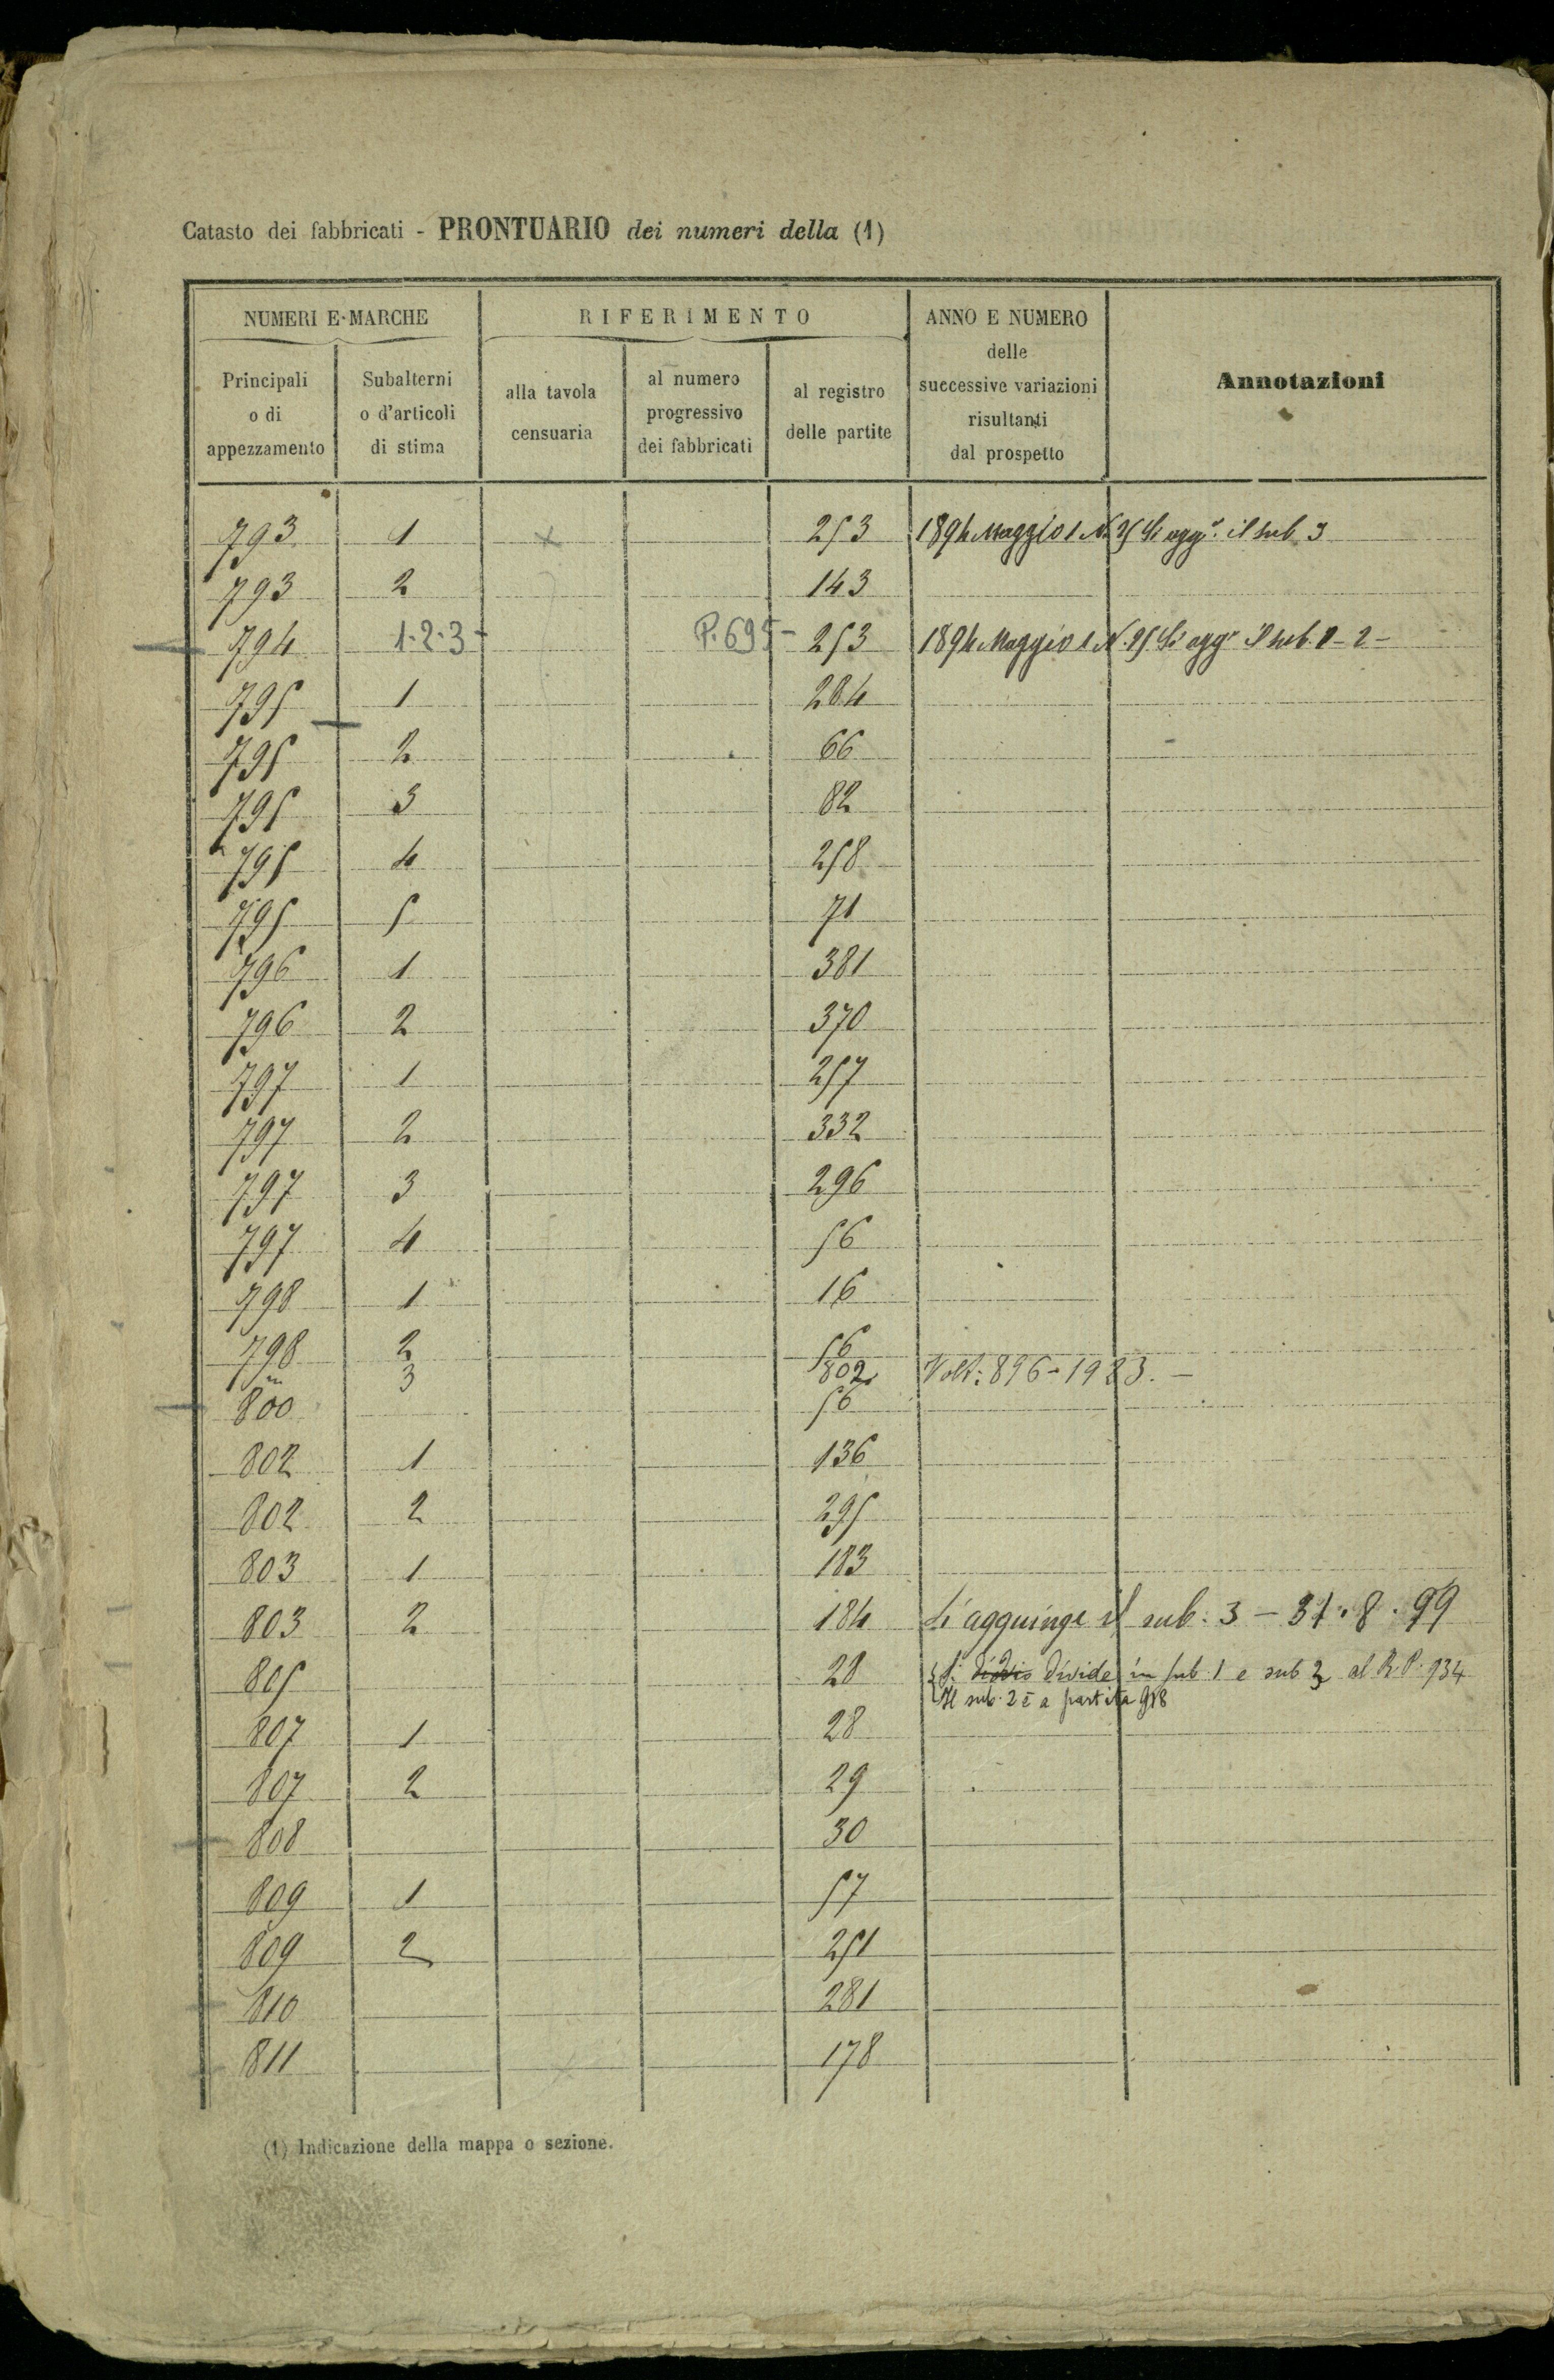 Catasto dei fabbricati - PRONTUARIO dei numeri della (1)
NUMERI E MARCHE RIFERIMENTO ANNO E NUMERO delle successive variazioni risultanti dal prospetto Annotazioni
Principali o di appezzamento Subalterni o d'articoli di stima alla tavola censuaria al numero progressivo dei fabbricati al registro delle partite
793 1 253 1894 Maggio 1 N. 25 Si agg. il sub 3
793 2 143
794 1-2-3- P. 695- 253 1894 Maggio 1 N. 25 Si agg. il sub. 1-2-
795 1 284
795 2 66
795 3 82
795 4 258
795 5 71
796 1 381
796 2 370
797 1 257
797 2 332
797 3 296
797 4 56
798 1 16
798 2 56
" 3 802 Volt: 896-1923.-
800 56
802 1 136
802 2 295
803 1 183
803 2 184 Si agguinge il sub. 3 - 31.8.99
805 28 Si divide in sub. 1 e sub 2 al R.P. 934
Il sub. 2 è a partita 918
807 1 28
807 2 29
808 30
809 1 57
809 2 251
810 281
811 178
(1) Indicazione della mappa o sezione.